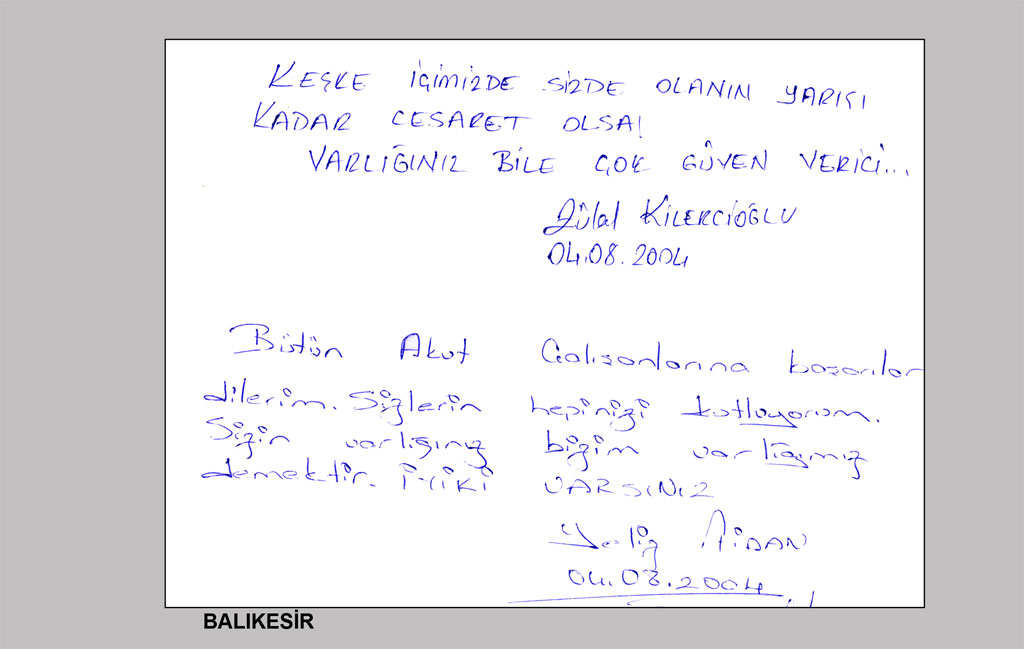 KEŞKE İÇİMİZDE SİZDE OLANIN YARISI
KADAR CESARET OLSA!
VARLIĞINIZ BİLE ÇOK GÜVEN VERİCİ...
Zülal KİLERCİOĞLU
04.08.2004
Bütün Akut Çalışanlarına başarılar
dilerim. Sizlerin hepinizi kutluyorum.
Sizin varlığınız bizim varlığımız
demektir. İYİKİ VARSINIZ
Yeliz
04.08.2004
BALIKESİR